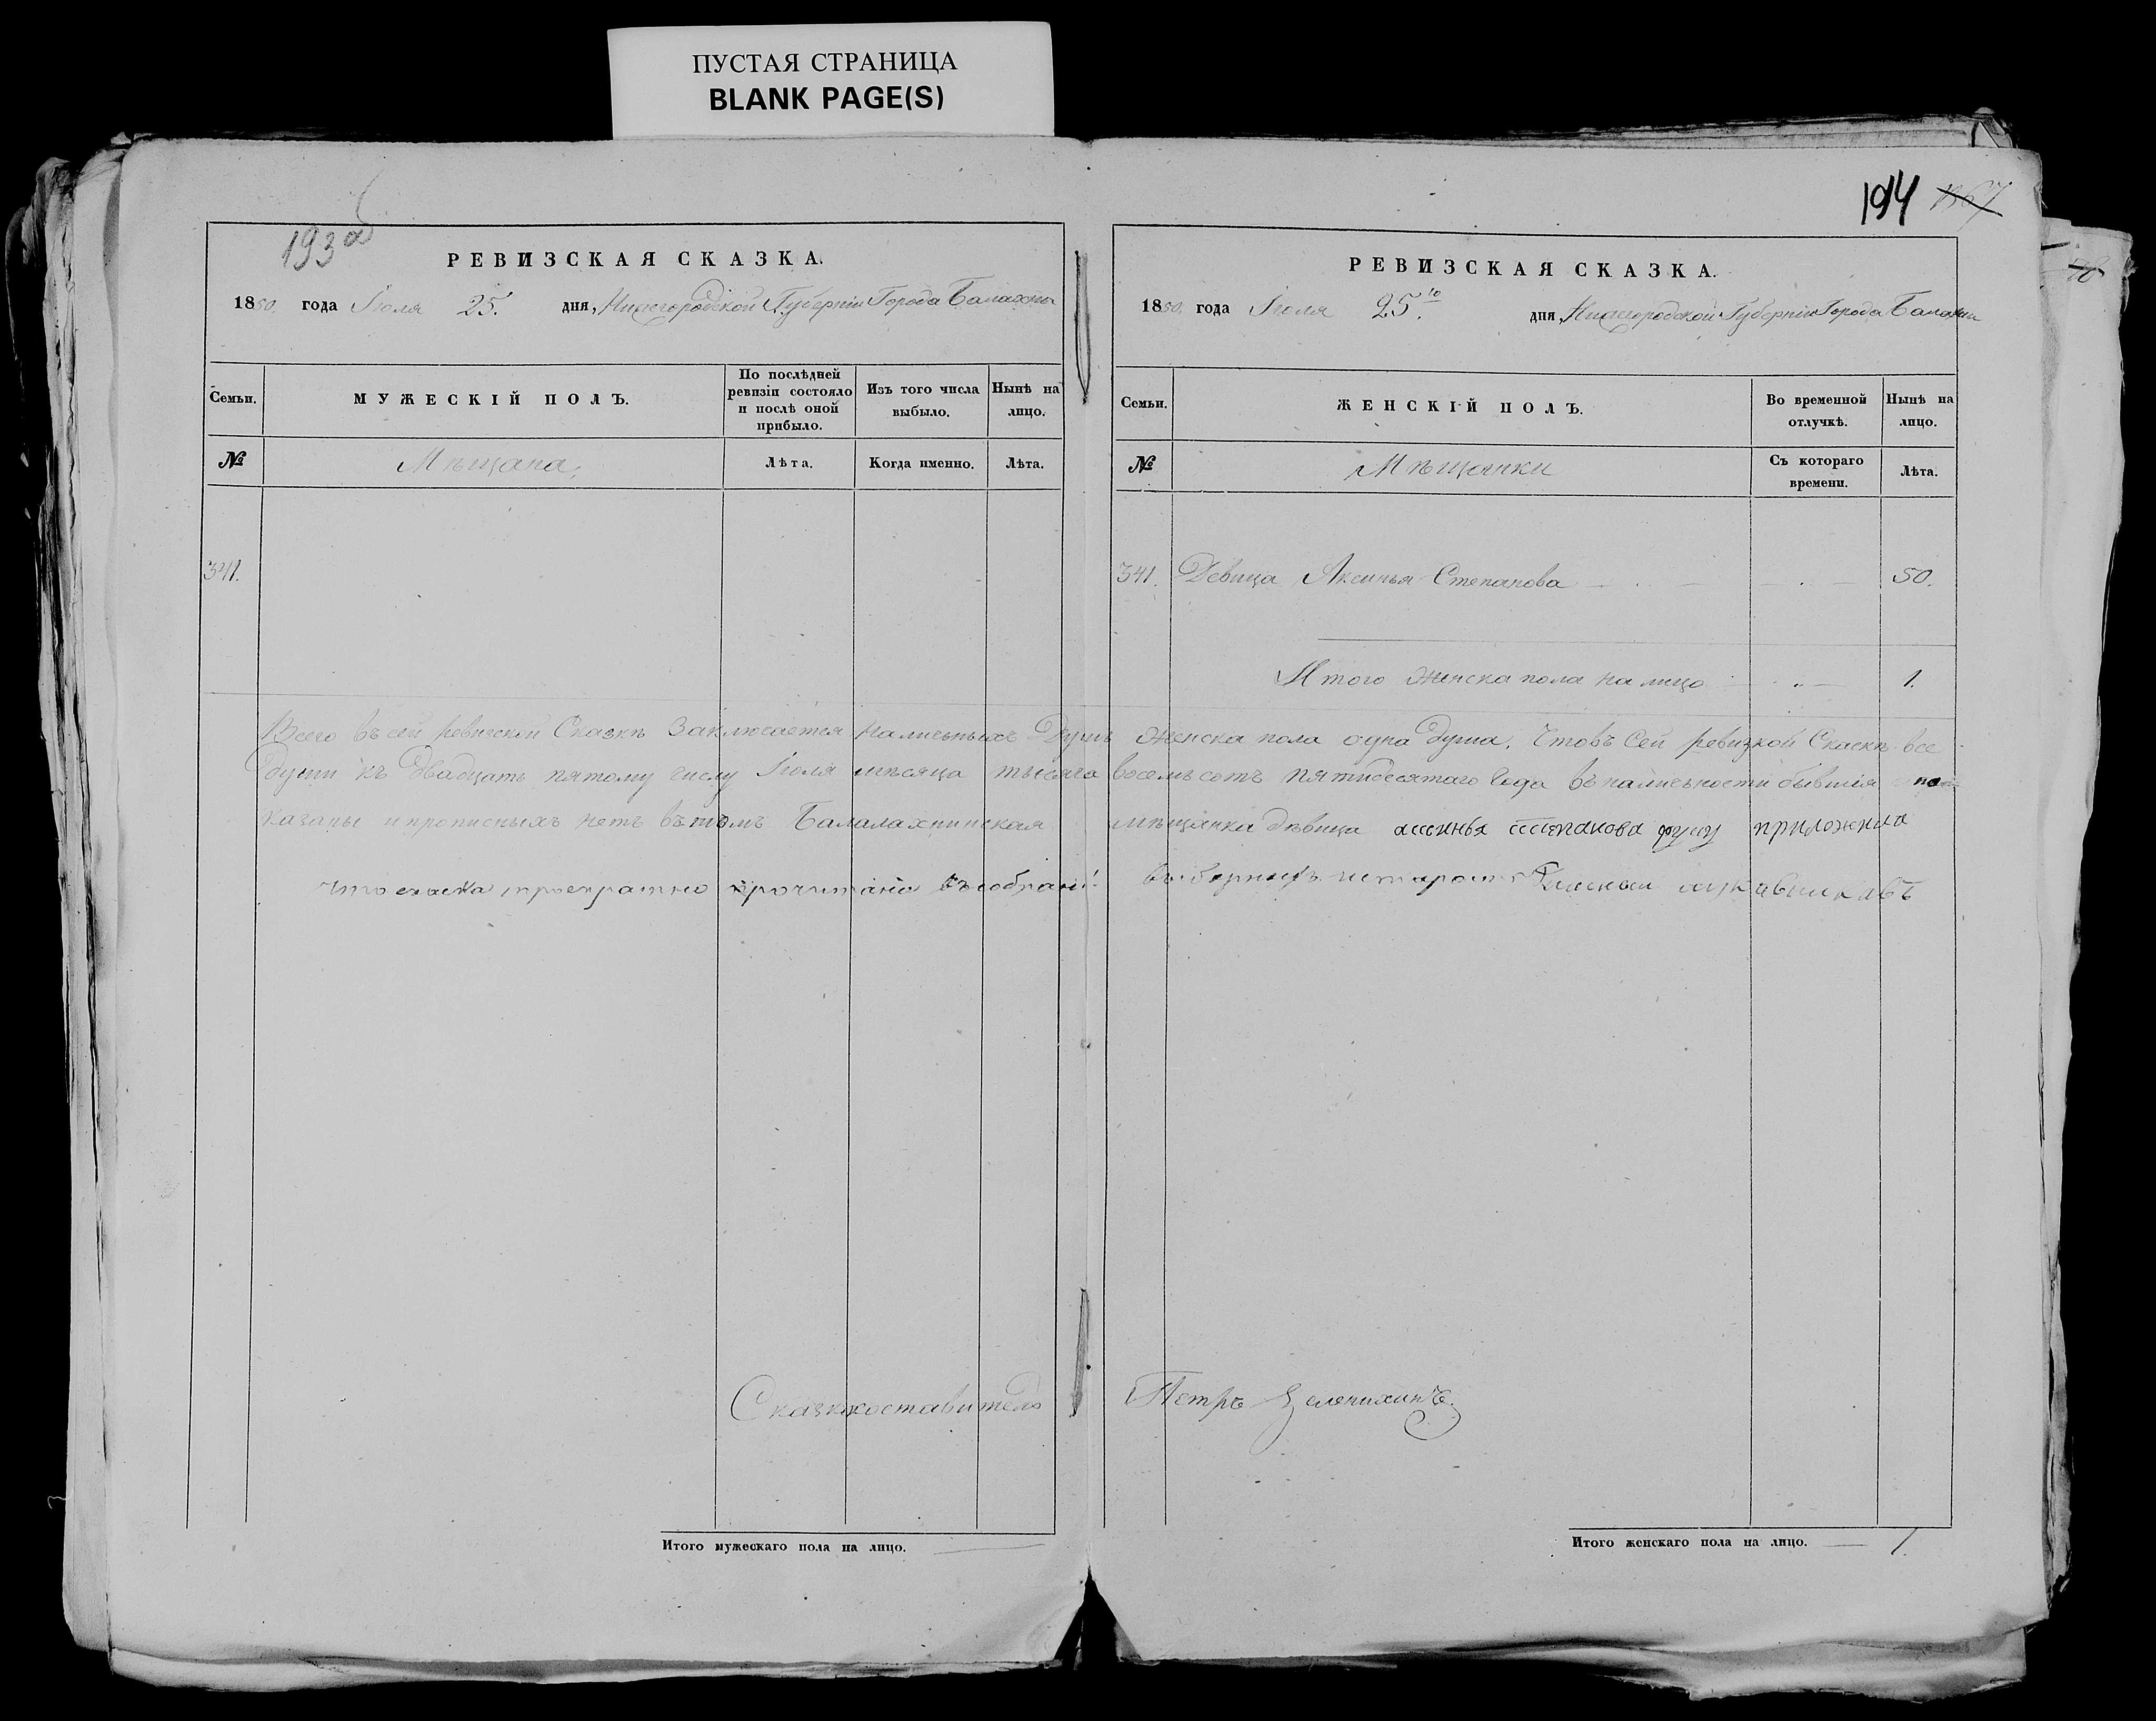 ПУСТАЯ СТРАНИЦА
BLANK PAGE(S)
193 об
РЕВИЗСКАЯ СКАЗКА.
1850. года Іюля 25. дня, Нижегородской Губерніи Города Балахны
Семьи. МУЖЕСКІЙ ПОЛЪ. По послѣдней ревизіи состояло и послѣ оной прибыло. Изъ того числа выбыло. Нынѣ на лицо.
№ Мѣщана, Лѣта. Когда именно. Лѣта.
341.
194 1367
РЕВИЗСКАЯ СКАЗКА.
1850. года Іюля 25.го дня, Нижегородской Губерніи Города Балахны
Семьи. ЖЕНСКІЙ ПОЛЪ. Во временной отлучкѣ. Нынѣ на лицо.
№ Мѣщанки Съ котораго времени. Лѣта.
341. Девица Аксинья Степанова 50.
Итого женска пола на лицо 1.
Всего въ сей ревизской Сказкѣ Заключается наличныхъ Душъ женска пола одна душа. Что въ Сей ревизкой Скаскѣ все
души къ двадцать пятому числу Іюля мѣсяца тысяча восемьсотъ пятидесятаго года въ наличности бывшія по
казаны и прописныхъ нетъ въ томъ Балалахнинская мѣщанка дѣвица степанова руку приложила
что скаска троекратно прочитано въ собрани
Сказкосоставитель Петръ Зеленихинъ.
Итого мужескаго пола на лицо.
Итого женскаго пола на лицо. 1.